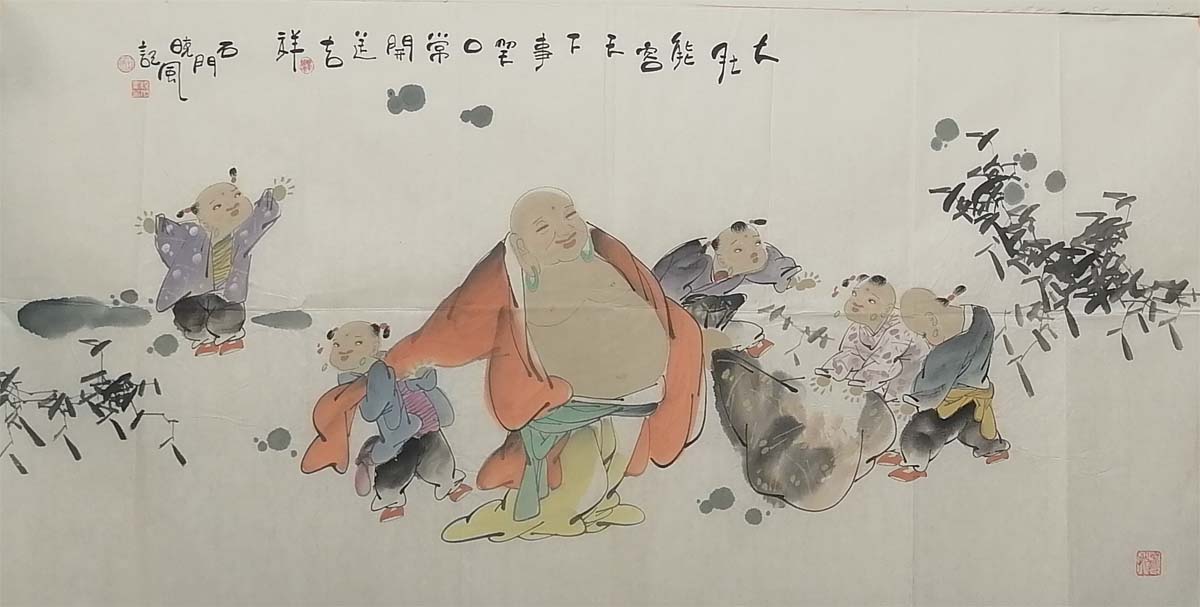 大肚能容天下事笑口常開送吉祥
石門
曉風
記